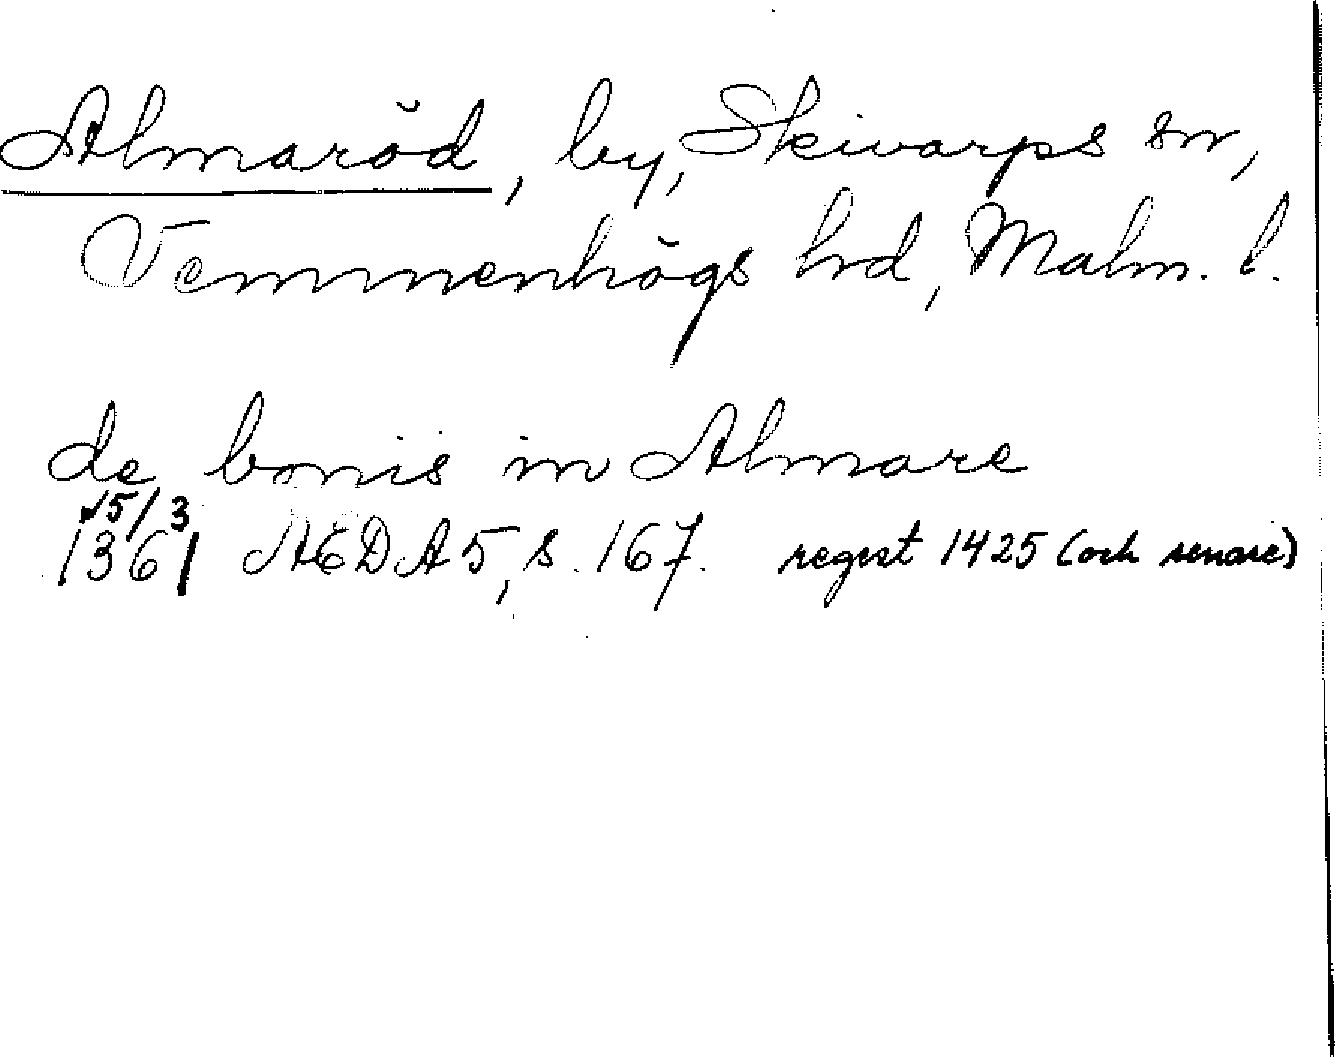 Almaröd, by, Skivarps sn,
Vemmenhögs hrd, Malm. l.
de bonis in Almare
15/3
1361 AEDA 5, s. 167. regest 1425 (och senare)